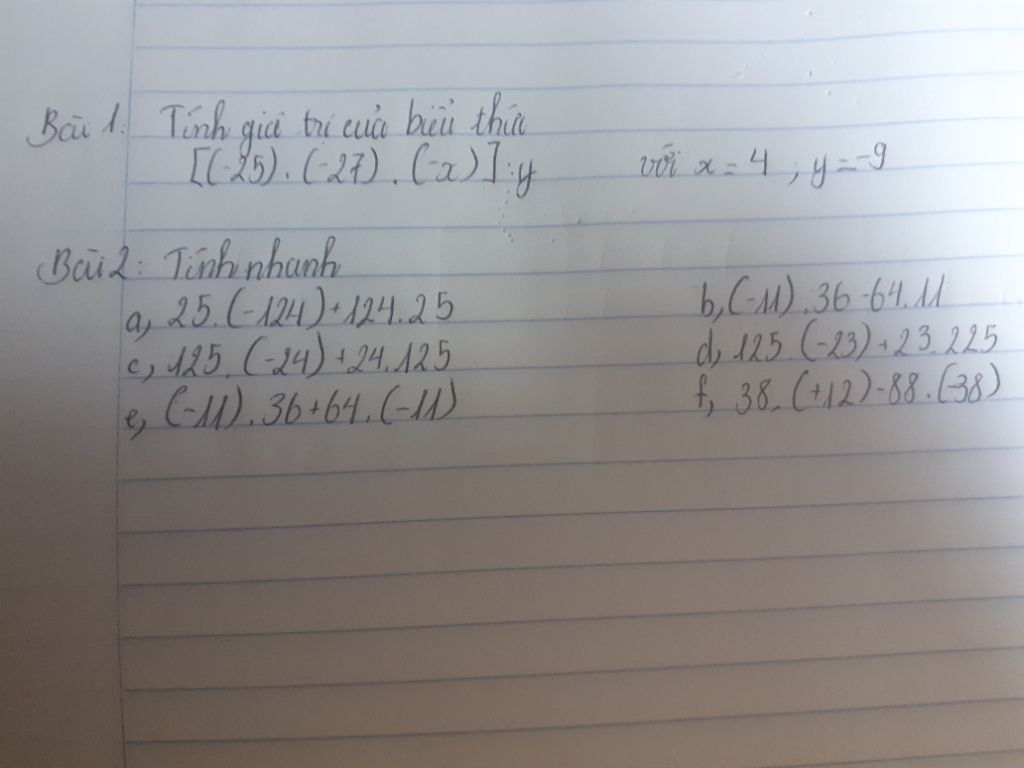 Bài 1: Tính giá trị của biểu thức
[(-25).(-27).(-x)]:y với x = 4 ; y = -9
Bài 2: Tính nhanh
a, 25.(-124)+124.25 b, (-11).36-64.11
c, 125.(-24)+24.125 d, 125.(-23)+23.225
e, (-11).36+64.(-11) f, 38.(+12)-88.(-38)